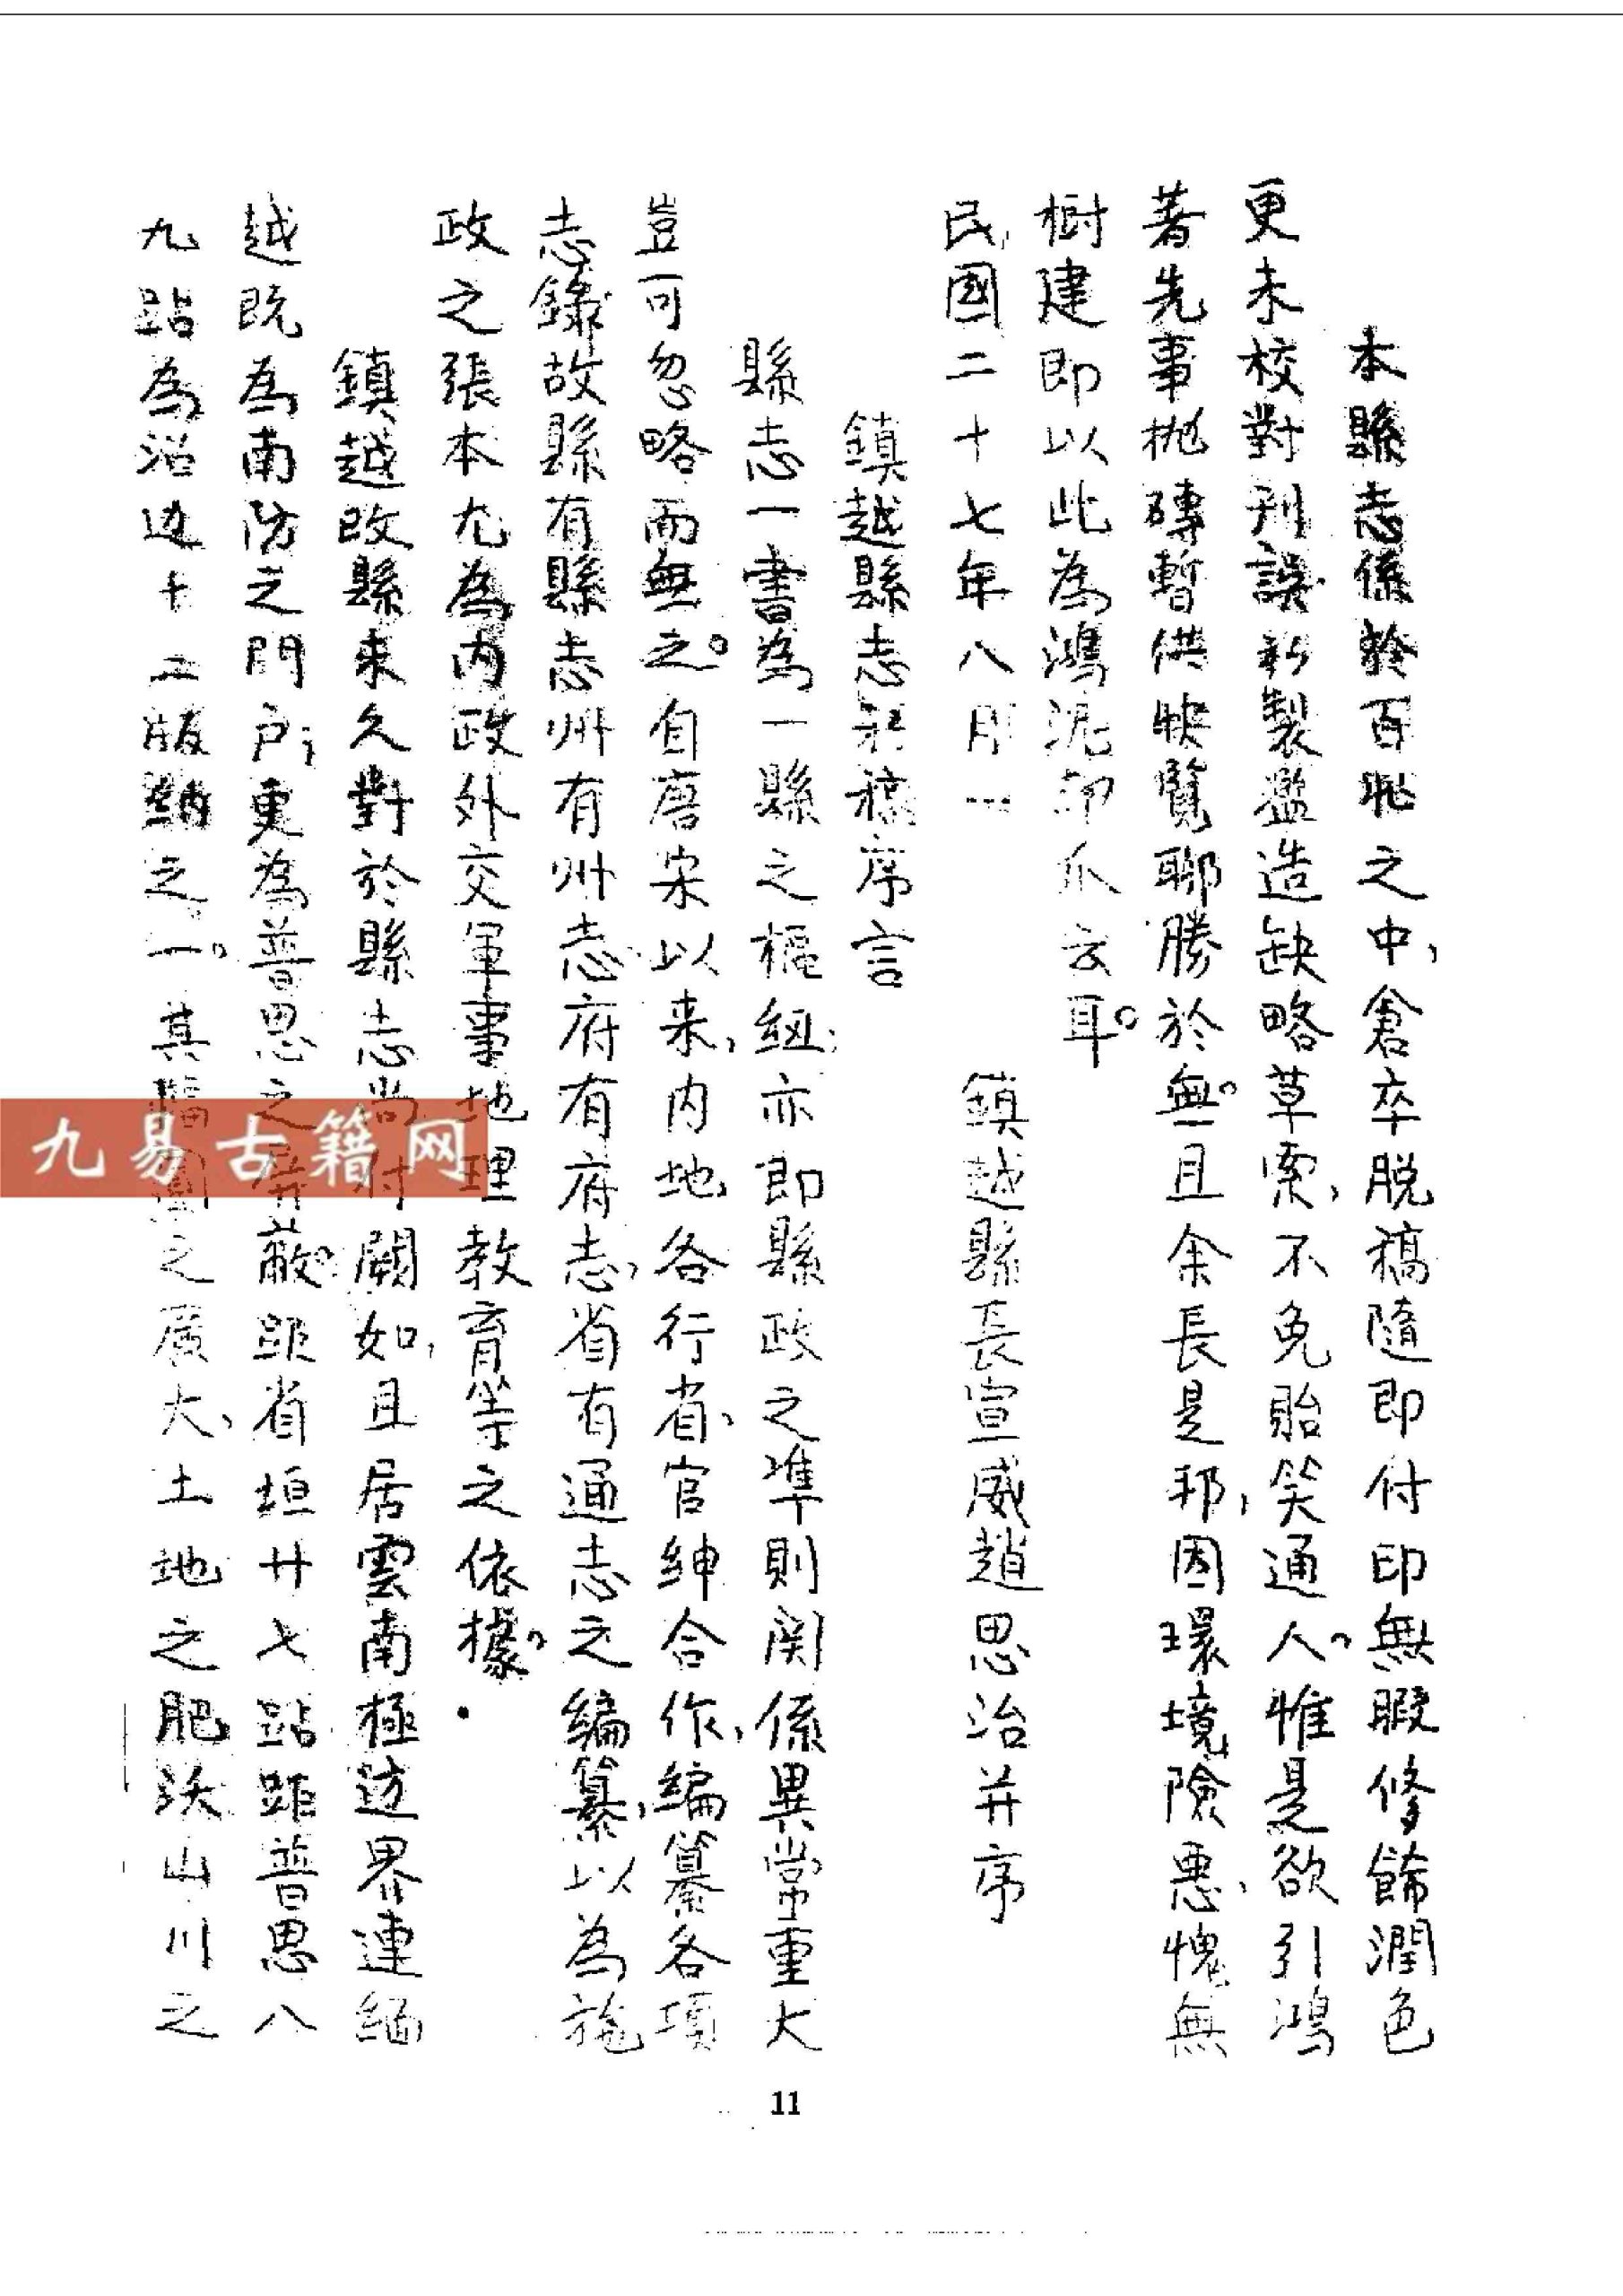 本縣志係於百忙之中，倉卒脫稿隨即付印無暇修餙潤色
更未校對刊誤初製濫造缺略草索，不免貽笑通人。惟是欲引鴻
著先事拋磚暫供快覽聊勝於無。且余長是邦，因環境險惡，愧無
樹建即以此為鴻泥印爪云耳。
民國二十七年八月 鎮越縣長宣威趙思治并序
鎮越縣志初稿序言
縣志一書為一縣之樞紐，亦即縣政之準則関係異常重大
豈可忽略而無之。自唐宋以来，内地各行省，官紳合作，編纂各項
志錄故縣有縣志州有州志府有府志，省有通志之編纂，以為施
政之張本尤為内政外交軍事地理教育等之依據。
鎮越改縣未久對於縣志尚付闕如，且居雲南極边界連緬
越既為南防之門户，更為普思之屏蔽。距省垣廿七站距普思八
九站為沿边十二版納之一。其幅圓之廣大，土地之肥沃山川之
11
九易古籍网